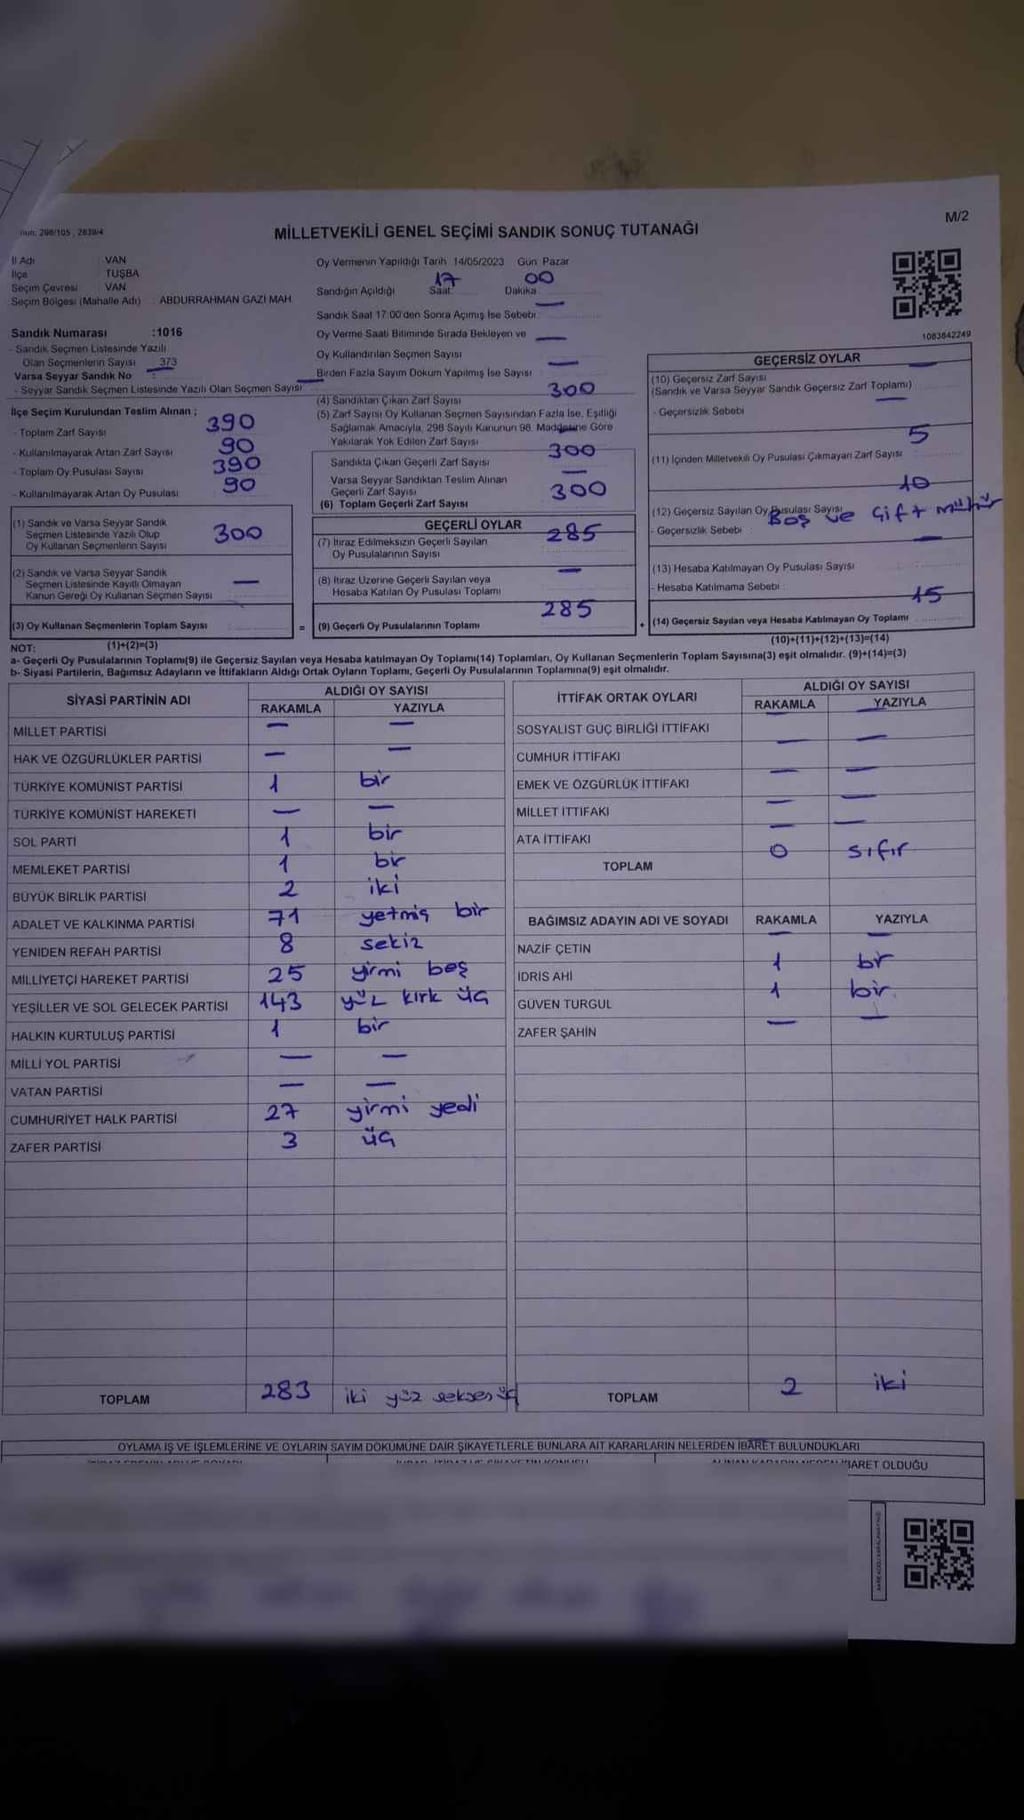 M/2
MİLLETVEKİLİ GENEL SEÇİMİ SANDIK SONUÇ TUTANAĞI
İl Adı : VAN
İlçe : TUŞBA
Seçim Çevresi : VAN
Seçim Bölgesi (Mahalle Adı) : ABDURRAHMAN GAZI MAH
Sandık Numarası :1016
- Sandık Seçmen Listesinde Yazılı
Olan Seçmenlerin Sayısı : 373
Varsa Seyyar Sandık No :
- Seyyar Sandık Seçmen Listesinde Yazılı Olan Seçmen Sayısı —
İlçe Seçim Kurulundan Teslim Alınan ;
- Toplam Zarf Sayısı 390
- Kullanılmayarak Artan Zarf Sayısı 90
- Toplam Oy Pusulası Sayısı 390
- Kullanılmayarak Artan Oy Pusulası 90
(1) Sandık ve Varsa Seyyar Sandık
Seçmen Listesinde Yazılı Olup
Oy Kullanan Seçmenlerin Sayısı 300
(2) Sandık ve Varsa Seyyar Sandık
Seçmen Listesinde Kayıtlı Olmayan
Kanun Gereği Oy Kullanan Seçmen Sayısı —
(3) Oy Kullanan Seçmenlerin Toplam Sayısı
(1)+(2)=(3)
Oy Vermenin Yapıldığı Tarih 14/05/2023 Gün Pazar
Sandığın Açıldığı 17 Saat 00 Dakika
Sandık Saat 17:00'den Sonra Açımış İse Sebebi : —
Oy Verme Saati Bitiminde Sırada Bekleyen ve
Oy Kullandırılan Seçmen Sayısı —
Birden Fazla Sayım Döküm Yapılmış İse Sayısı —
(4) Sandıktan Çıkan Zarf Sayısı 300
(5) Zarf Sayısı Oy Kullanan Seçmen Sayısından Fazla İse, Eşitliği
Sağlamak Amacıyla, 298 Sayılı Kanunun 98. Maddesine Göre
Yakılarak Yok Edilen Zarf Sayısı —
Sandıkta Çıkan Geçerli Zarf Sayısı 300
Varsa Seyyar Sandıktan Teslim Alınan
Geçerli Zarf Sayısı —
(6) Toplam Geçerli Zarf Sayısı 300
GEÇERLİ OYLAR
(7) İtiraz Edilmeksizin Geçerli Sayılan
Oy Pusulalarının Sayısı 285
(8) İtiraz Üzerine Geçerli Sayılan veya
Hesaba Katılan Oy Pusulası Toplamı —
= (9) Geçerli Oy Pusulalarının Toplamı 285
1083842249
GEÇERSİZ OYLAR
(10) Geçersiz Zarf Sayısı
(Sandık ve Varsa Seyyar Sandık Geçersiz Zarf Toplamı) —
- Geçersizlik Sebebi
(11) İçinden Milletvekili Oy Pusulası Çıkmayan Zarf Sayısı 5
(12) Geçersiz Sayılan Oy Pusulası Sayısı 10
- Geçersizlik Sebebi : Boş ve Çift mühür
(13) Hesaba Katılmayan Oy Pusulası Sayısı —
- Hesaba Katılmama Sebebi
+ (14) Geçersiz Sayılan veya Hesaba Katılmayan Oy Toplamı 15
(10)+(11)+(12)+(13)=(14)
NOT:
a- Geçerli Oy Pusulalarının Toplamı(9) ile Geçersiz Sayılan veya Hesaba katılmayan Oy Toplamı(14) Toplamları, Oy Kullanan Seçmenlerin Toplam Sayısına(3) eşit olmalıdır. (9)+(14)=(3)
b- Siyasi Partilerin, Bağımsız Adayların ve İttifakların Aldığı Ortak Oyların Toplamı, Geçerli Oy Pusulalarının Toplamına(9) eşit olmalıdır.
SİYASİ PARTİNİN ADI ALDIĞI OY SAYISI
RAKAMLA YAZIYLA
MİLLET PARTİSİ — —
HAK VE ÖZGÜRLÜKLER PARTİSİ — —
TÜRKİYE KOMÜNİST PARTİSİ 1 bir
TÜRKİYE KOMÜNİST HAREKETİ — —
SOL PARTİ 1 bir
MEMLEKET PARTİSİ 1 bir
BÜYÜK BİRLİK PARTİSİ 2 iki
ADALET VE KALKINMA PARTİSİ 71 yetmiş bir
YENİDEN REFAH PARTİSİ 8 sekiz
MİLLİYETÇİ HAREKET PARTİSİ 25 yirmi beş
YEŞİLLER VE SOL GELECEK PARTİSİ 143 yüz kırk üç
HALKIN KURTULUŞ PARTİSİ 1 bir
MİLLİ YOL PARTİSİ — —
VATAN PARTİSİ — —
CUMHURİYET HALK PARTİSİ 27 yirmi yedi
ZAFER PARTİSİ 3 üç
TOPLAM 283 iki yüz seksen üç
İTTİFAK ORTAK OYLARI ALDIĞI OY SAYISI
RAKAMLA YAZIYLA
SOSYALİST GÜÇ BİRLİĞİ İTTİFAKI — —
CUMHUR İTTİFAKI — —
EMEK VE ÖZGÜRLÜK İTTİFAKI — —
MİLLET İTTİFAKI — —
ATA İTTİFAKI — —
TOPLAM 0 sıfır
BAĞIMSIZ ADAYIN ADI VE SOYADI RAKAMLA YAZIYLA
NAZİF ÇETİN — —
İDRİS AHİ 1 bir
GÜVEN TURGUL 1 bir
ZAFER ŞAHİN — —
TOPLAM 2 iki
OYLAMA İŞ VE İŞLEMLERİNE VE OYLARIN SAYIM DÖKÜMÜNE DAİR ŞİKAYETLERLE BUNLARA AİT KARARLARIN NELERDEN İBARET BULUNDUKLARI
İBARET OLDUĞU